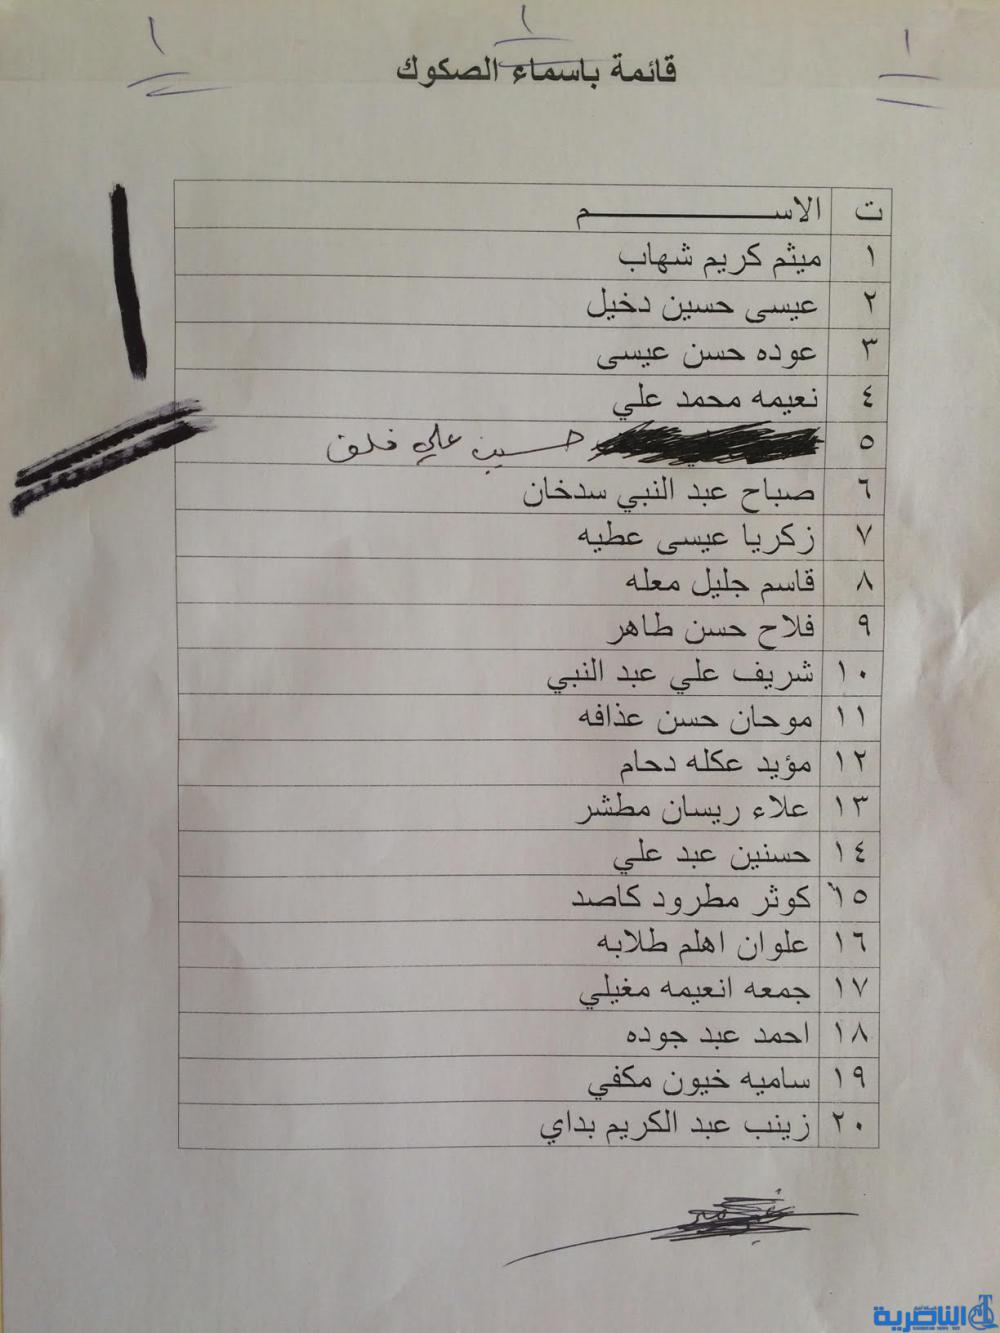 ١ ١ ١
قائمة باسماء الصكوك
ت الاســـــــــــــم
١ ميثم كريم شهاب
٢ عيسى حسين دخيل
٣ عوده حسن عيسى
٤ نعيمه محمد علي
٥ حسين علي فلق
٦ صباح عبد النبي سدخان
٧ زكريا عيسى عطيه
٨ قاسم جليل معله
٩ فلاح حسن طاهر
١٠ شريف علي عبد النبي
١١ موحان حسن عذافه
١٢ مؤيد عكله دحام
١٣ علاء ريسان مطشر
١٤ حسنين عبد علي
١٥ كوثر مطرود كاصد
١٦ علوان اهلم طلابه
١٧ جمعه انعيمه مغيلي
١٨ احمد عبد جوده
١٩ ساميه خيون مكفي
٢٠ زينب عبد الكريم بداي
١
الناصرية